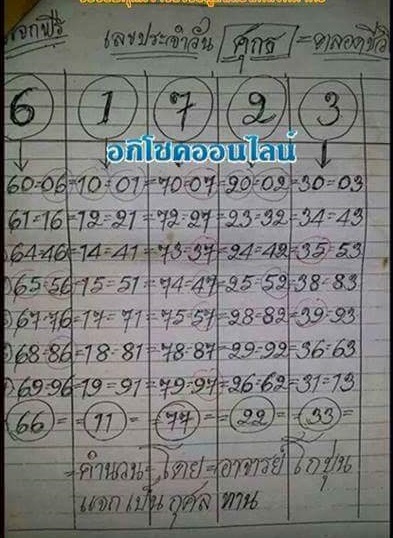 แจกฟรี เลขประจำวัน ศุกร์ = ตลอดชีวิ
6 1 7 2 3
อภิโชคออนไลน์
60=06=10=01=70=07=20=02=30=03
61=16=12=21=72=27=23=32=34=43
64=46=14=41=73=37=24=42=35=53
65=56=15=51=74=47=25=52=38=83
67=76=17=71=75=57=28=82=39=93
68=86=18=81=78=87=29=92=36=63
69=96=19=91=79=97=26=62=31=13
66= =11= =77= =22= =33=
=คำนวน=โดย=อาจารย์ โกปุน
แจกเป็นกุศลทาน